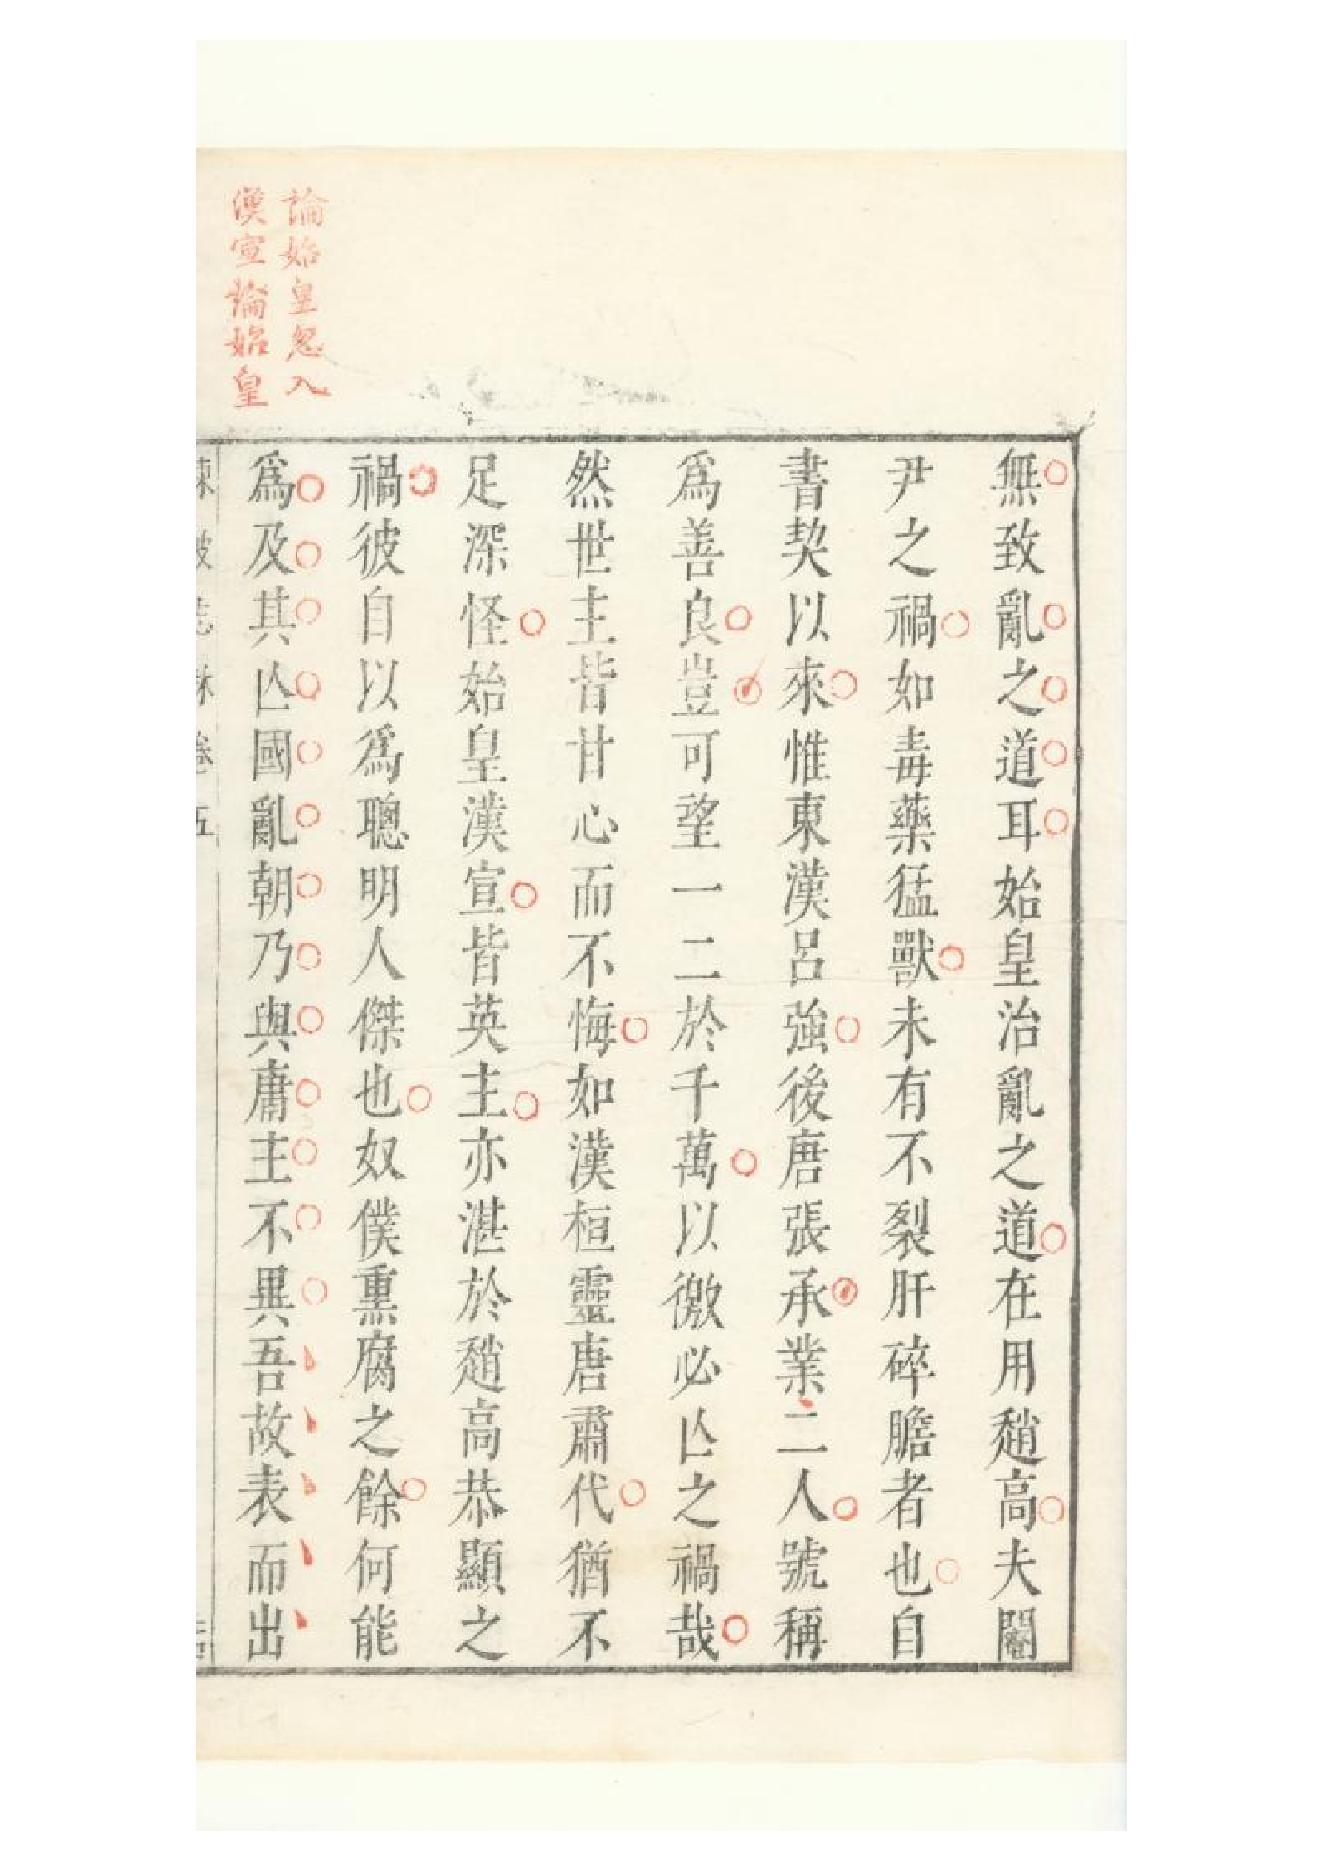 論始皇忽入
漢宣論始皇
無致亂之道耳始皇治亂之道在用趙高夫閹
尹之禍如毒藥猛獸未有不裂肝碎膽者也自
書契以來惟東漢呂強後唐張承業二人號稱
為善良豈可望一二於千萬以徼必亾之禍哉
然世主皆甘心而不悔如漢桓靈唐肅代猶不
足深怪始皇漢宣皆英主亦湛於趙高恭顯之
禍彼自以為聰明人傑也奴僕熏腐之餘何能
為及其亾國亂朝乃與庸主不異吾故表而出